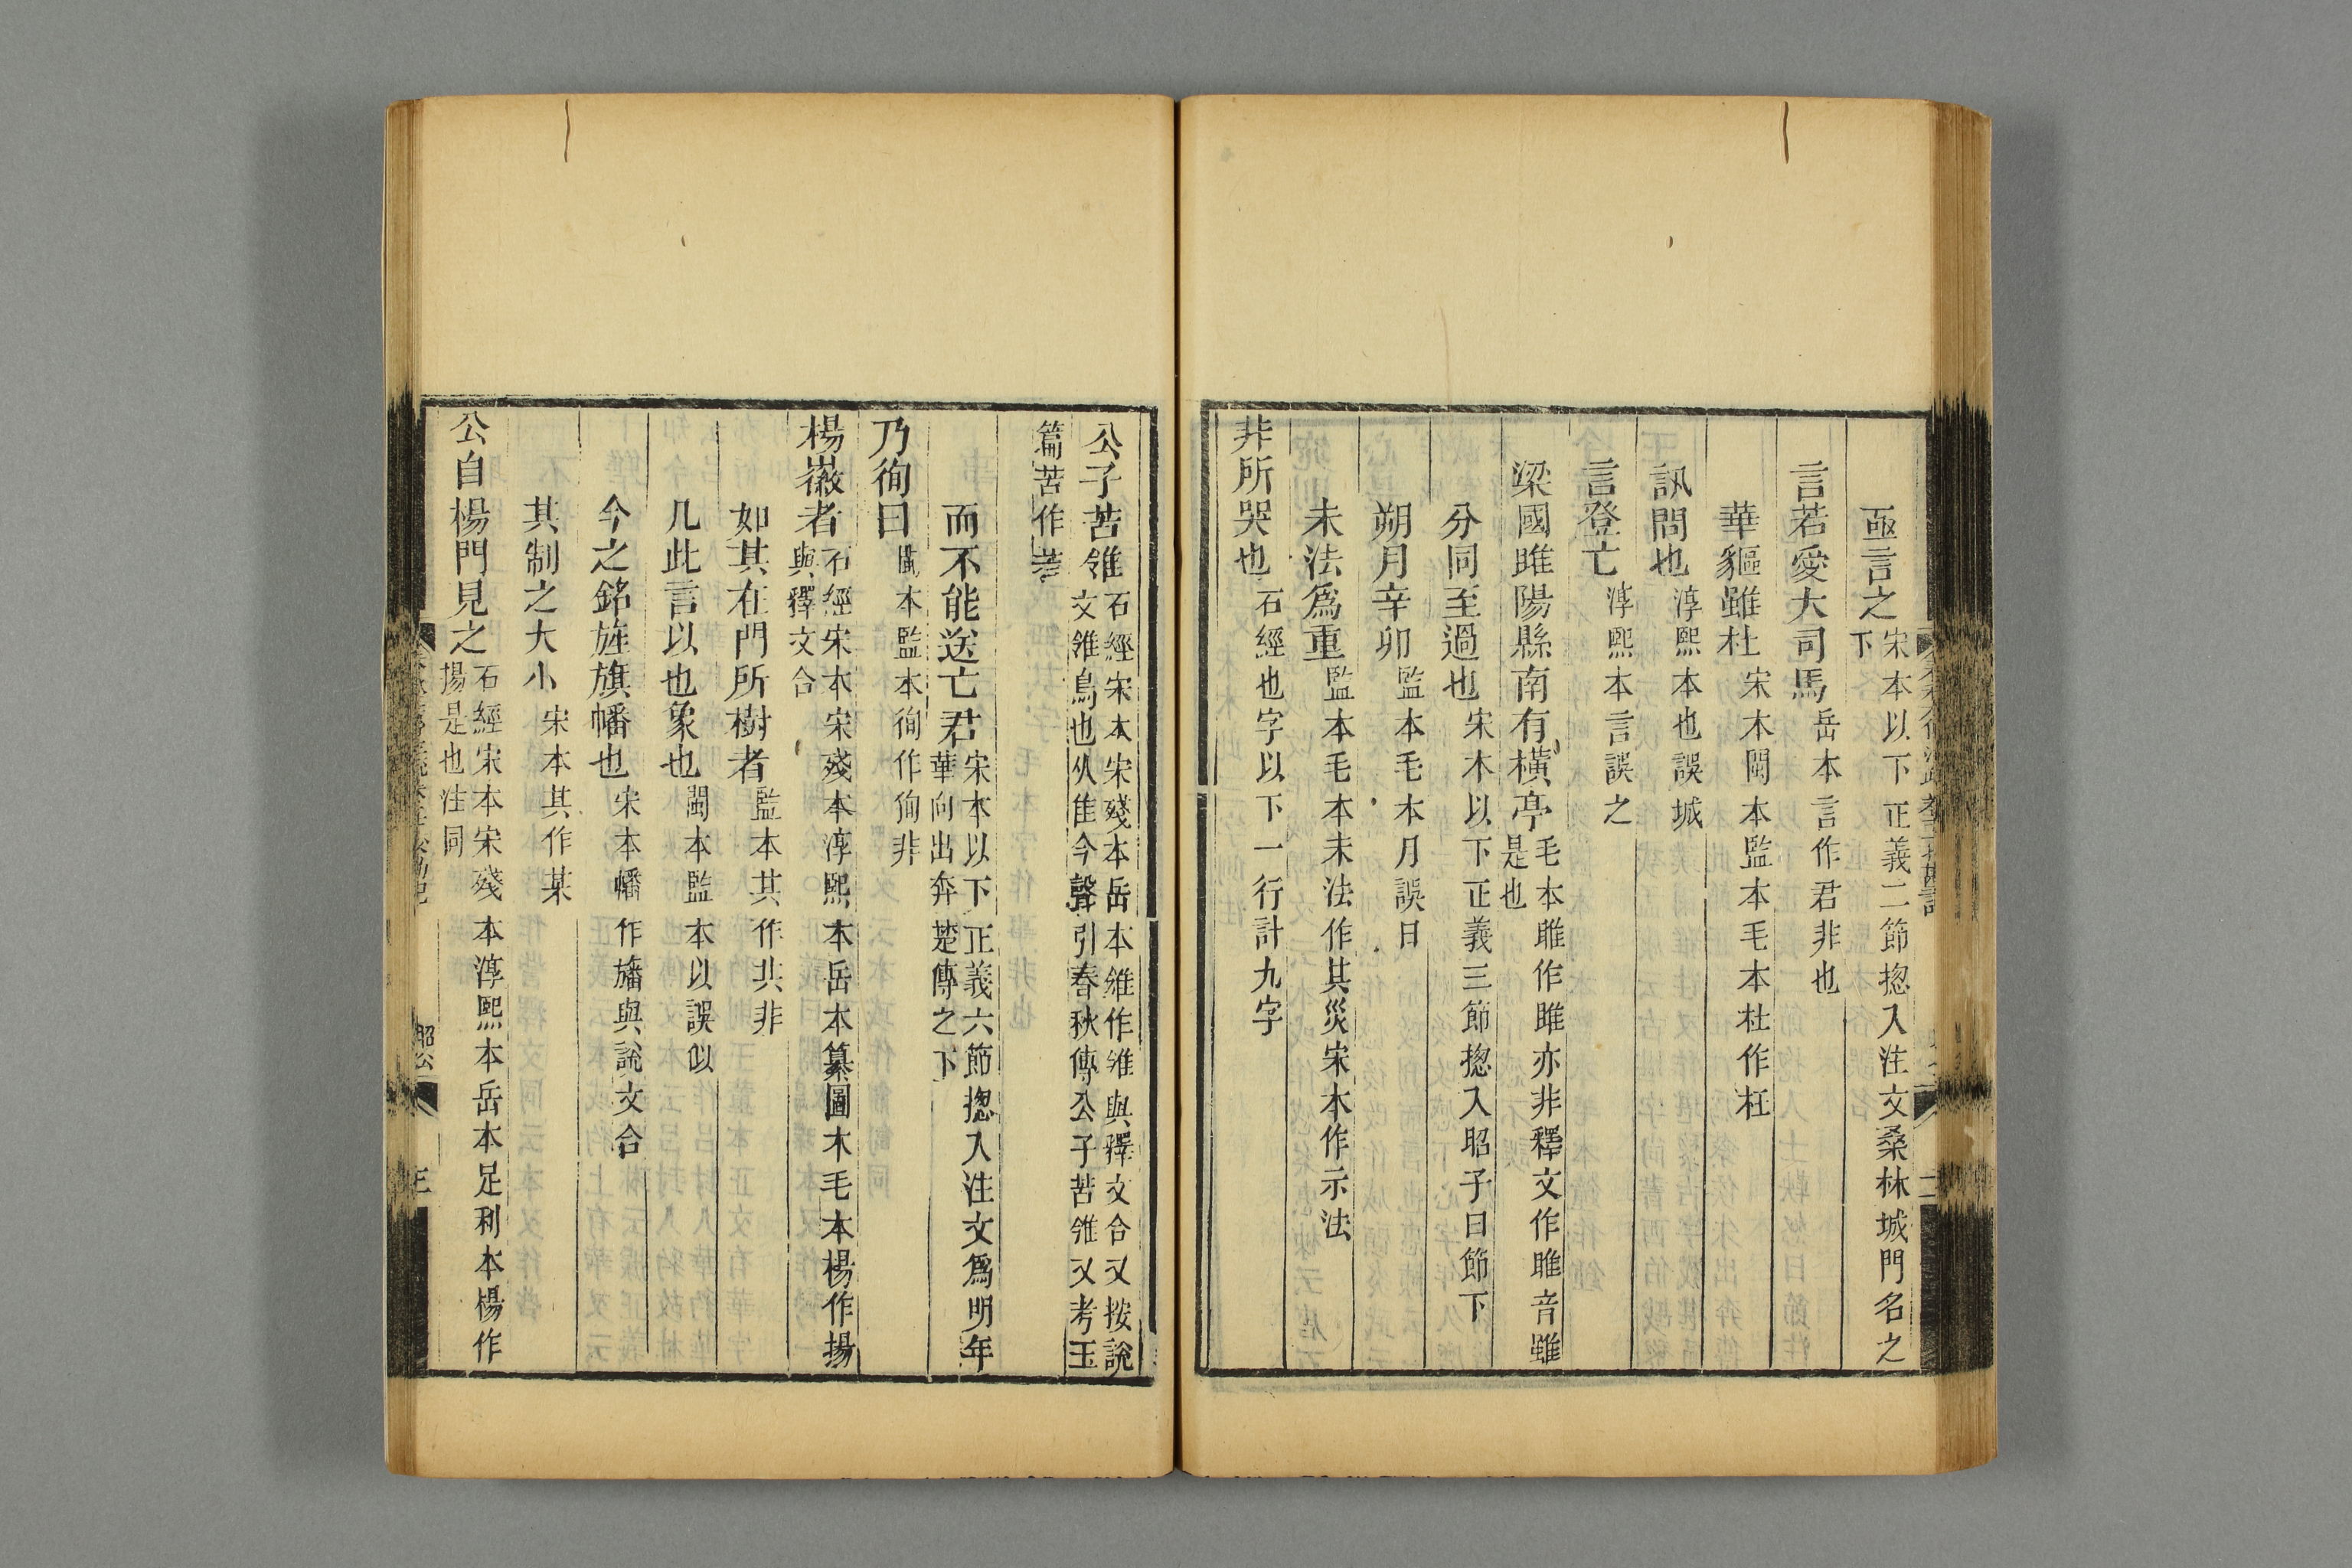 亟言之宋本以下正義二節揔入注文桑林城門名之下
言若愛大司馬岳本言作君非也
華貙雖杜宋本閩本監本毛本杜作枉
訊問也淳熙本也誤城
言登亡淳熙本言誤之
梁國睢陽縣南有橫亭毛本睢作雎亦非釋文作雎音雖是也
分同至過也宋本以下正義三節揔入昭子曰節下
朔月辛卯監本毛本月誤日
未法爲重監本毛本未法作其災宋本作示法
非所哭也石經也字以下一行計九字
公子苦雂石經宋本宋殘本岳本雂作雉與釋文合又按說文雂鳥也从隹今聲引春秋傳公子苦雂又考玉
篇苦作若
而不能送亡君宋本以下正義六節揔入注文爲明年華向出奔楚傳之下
乃徇曰閩本監本徇作狥非
楊徽者石經宋本宋殘本淳熙本岳本纂圖本毛本楊作揚與釋文合
如其在門所樹者監本其作共非
凡此言以也象也閩本監本以誤似
今之銘旌旗幡也宋本幡作旛與說文合
其制之大小宋本其作某
公自楊門見之石經宋本宋殘本淳熙本岳本足利本楊作揚是也注同
昭公